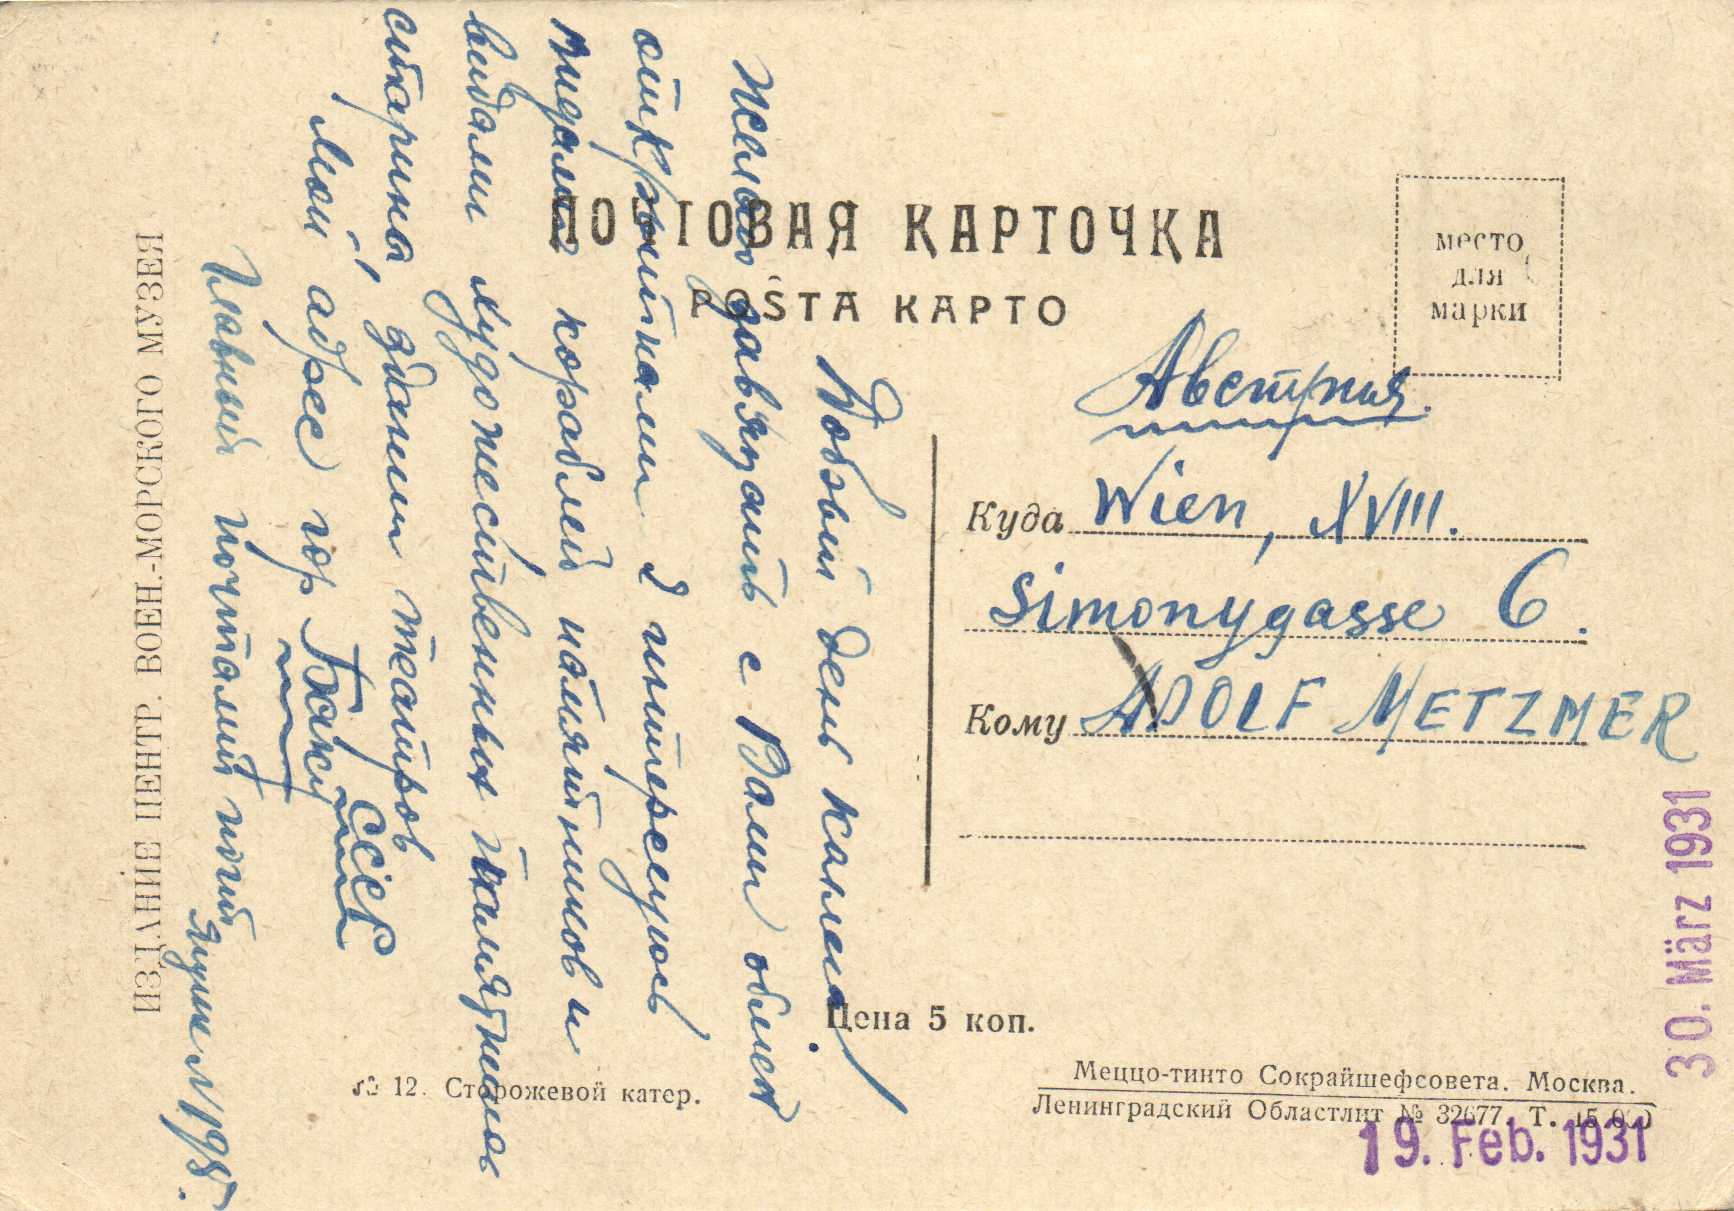 ПОЧТОВАЯ КАРТОЧКА
POŜTA КАРТО
место
для
марки
Австрия.
Куда Wien, XVIII.
Simonygasse 6.
Кому ADOLF METZMER
Добрый день коллега!
Желаю завязать с Вами обмен
открытками я интересуюсь
видами кораблей памятников и
видами художественных
старинных здании театров
Мой адрес гор Баку СССР
Главный почтамт
ИЗДАНИЕ ЦЕНТР. ВОЕН.-МОРСКОГО МУЗЕЯ
Цена 5 коп.
№ 12. Сторожевой катер.
Меццо-тинто Сокрайшефсовета. Москва.
Ленинградский Областлит № 32677. Т. 15 000
19. Feb. 1931
30. März 1931